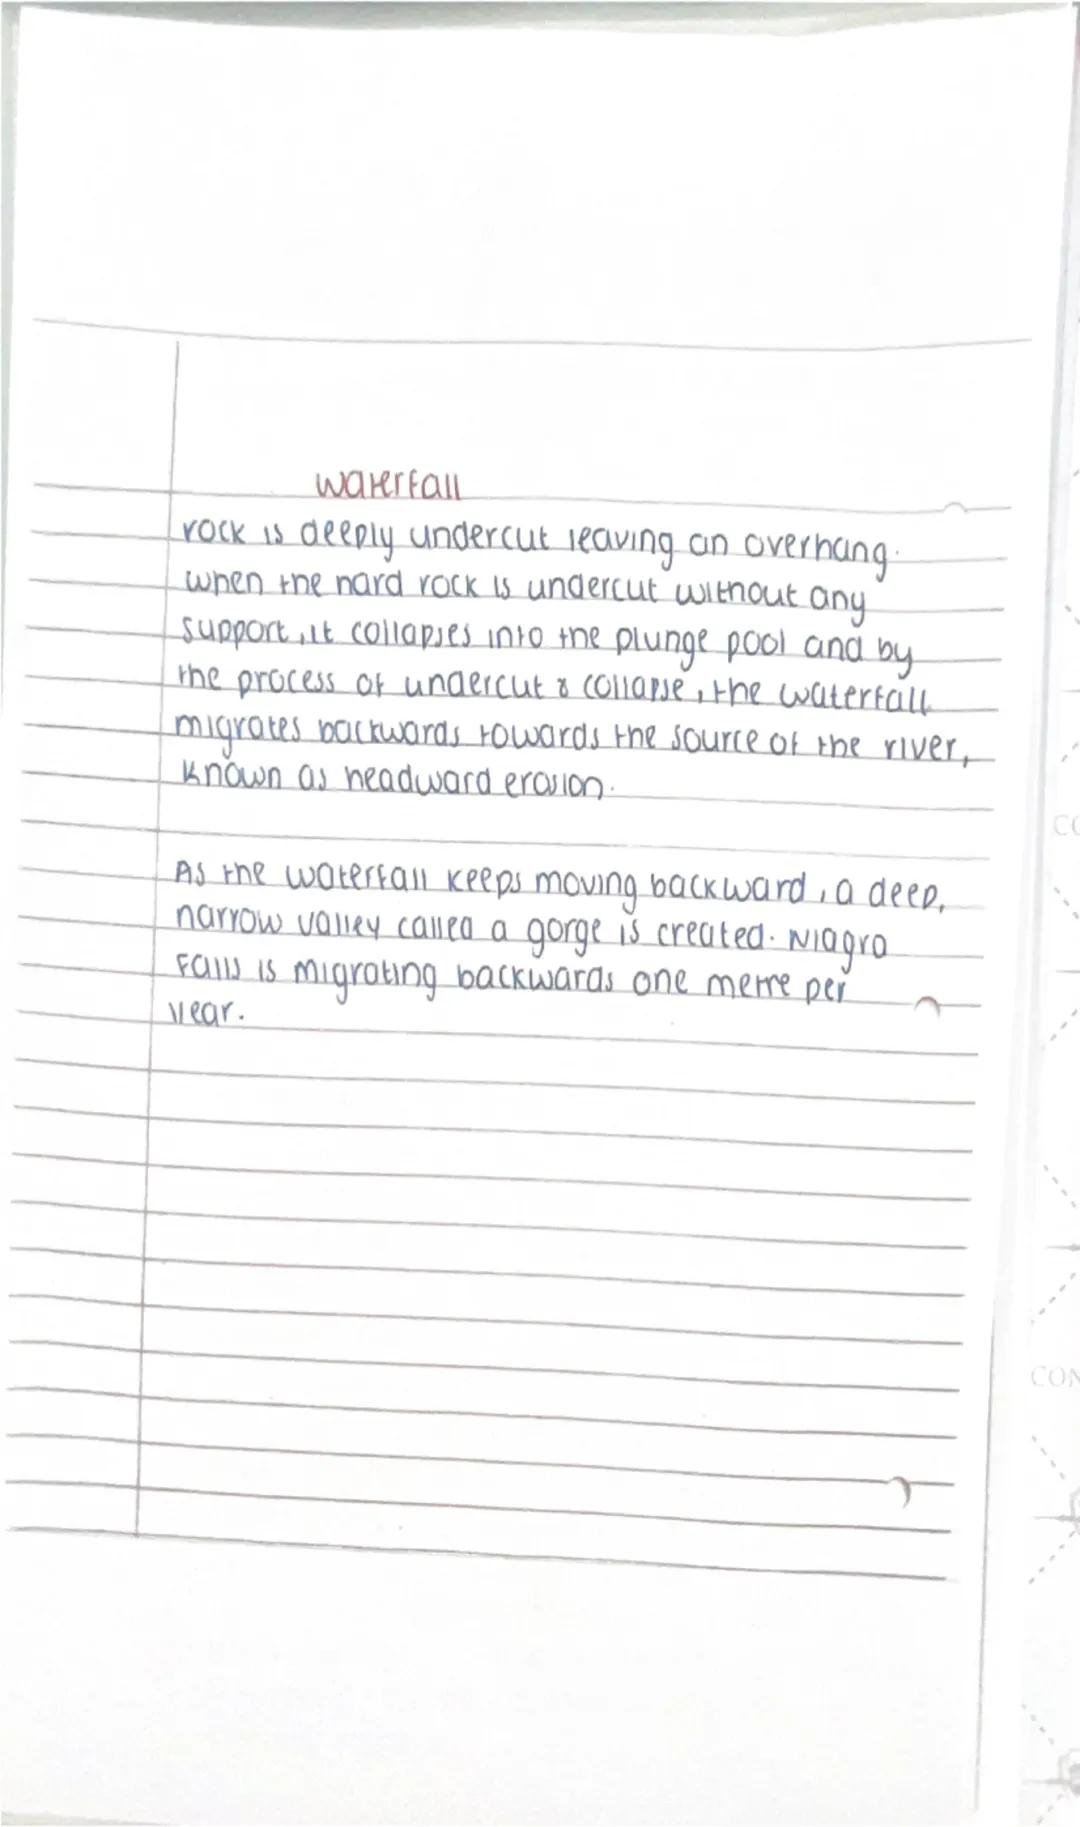 waterfall
rock is deeply undercut leaving an overhang.
when the hard rock is undercut without any
support, it collapses into the plunge pool and by
the process of undercut & collapse, the waterfall
migrates backwards towards the source of the river,
known as headward erosion.
As the waterfall keeps moving backward, a deep,
narrow valley called a gorge is created. Niagra
Falls is migrating backwards one metre per
year.
CO
CON